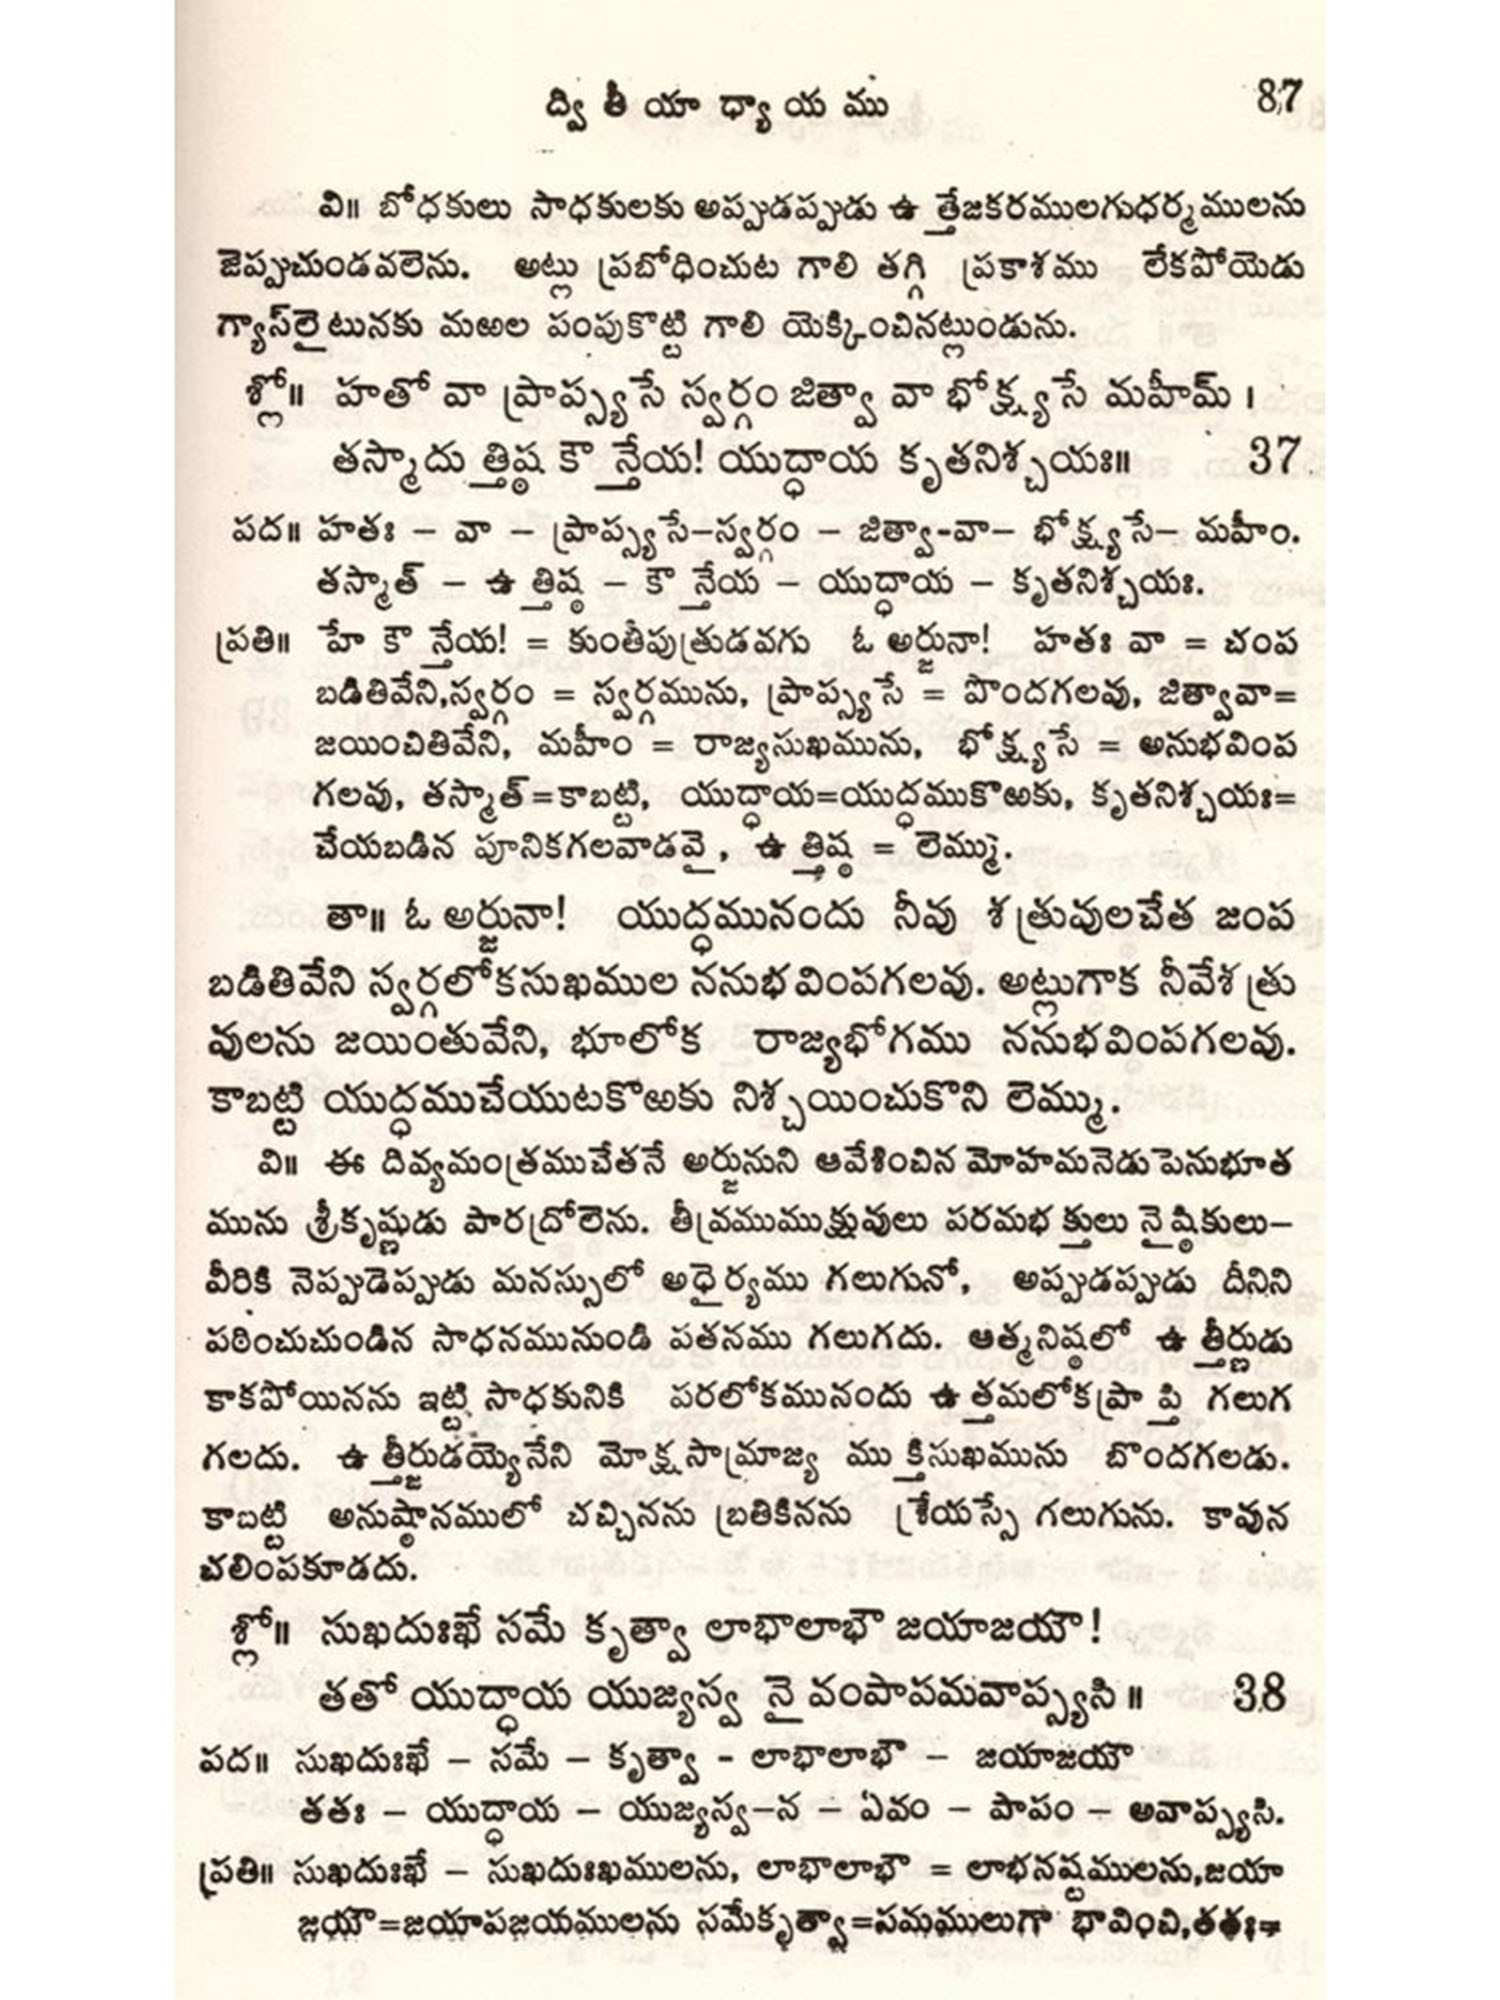 ద్వితీయాధ్యాయము 87
వి॥ బోధకులు సాధకులకు అప్పుడప్పుడు ఉత్తేజకరములగుధర్మములను
జెప్పుచుండవలెను. అట్లు ప్రబోధించుట గాలి తగ్గి ప్రకాశము లేకపోయెడు
గ్యాస్‌లైటునకు మఱల పంపుకొట్టి గాలి యెక్కించినట్లుండును.
శ్లో॥ హతో వా ప్రాప్స్యసే స్వర్గం జిత్వా వా భోక్ష్యసే మహీమ్ ।
తస్మాదుత్తిష్ఠ కౌన్తేయ! యుద్ధాయ కృతనిశ్చయః॥ 37
పద॥ హతః – వా – ప్రాప్స్యసే–స్వర్గం – జిత్వా-వా– భోక్ష్యసే– మహీం.
తస్మాత్ – ఉత్తిష్ఠ – కౌన్తేయ – యుద్ధాయ – కృతనిశ్చయః.
ప్రతి॥ హే కౌన్తేయ! = కుంతీపుత్రుడవగు ఓ అర్జునా! హతః వా = చంప
బడితివేని,స్వర్గం = స్వర్గమును, ప్రాప్స్యసే = పొందగలవు, జిత్వావా=
జయించితివేని, మహీం = రాజ్యసుఖమును, భోక్ష్యసే = అనుభవింప
గలవు, తస్మాత్=కాబట్టి, యుద్ధాయ=యుద్ధముకొఱకు, కృతనిశ్చయః=
చేయబడిన పూనికగలవాడవై, ఉత్తిష్ఠ = లెమ్ము.
తా॥ ఓ అర్జునా! యుద్ధమునందు నీవు శత్రువులచేత జంప
బడితివేని స్వర్గలోకసుఖముల ననుభవింపగలవు. అట్లుగాక నీవేశత్రు
వులను జయింతువేని, భూలోక రాజ్యభోగము ననుభవింపగలవు.
కాబట్టి యుద్ధముచేయుటకొఱకు నిశ్చయించుకొని లెమ్ము.
వి॥ ఈ దివ్యమంత్రముచేతనే అర్జునుని ఆవేశించిన మోహమనెడుపెనుభూత
మును శ్రీకృష్ణుడు పారద్రోలెను. తీవ్రముముక్షువులు పరమభక్తులు నైష్ఠికులు–
వీరికి నెప్పుడెప్పుడు మనస్సులో అధైర్యము గలుగునో, అప్పుడప్పుడు దీనిని
పఠించుచుండిన సాధనమునుండి పతనము గలుగదు. ఆత్మనిష్ఠలో ఉత్తీర్ణుడు
కాకపోయినను ఇట్టి సాధకునికి పరలోకమునందు ఉత్తమలోకప్రాప్తి గలుగ
గలదు. ఉత్తీర్ణుడయ్యెనేని మోక్షసామ్రాజ్య ముక్తిసుఖమును బొందగలడు.
కాబట్టి అనుష్ఠానములో చచ్చినను బ్రతికినను శ్రేయస్సే గలుగును. కావున
చలింపకూడదు.
శ్లో॥ సుఖదుఃఖే సమే కృత్వా లాభాలాభౌ జయాజయౌ!
తతో యుద్ధాయ యుజ్యస్వ నైవంపాపమవాప్స్యసి॥ 38
పద॥ సుఖదుఃఖే – సమే – కృత్వా - లాభాలాభౌ – జయాజయౌ
తతః – యుద్ధాయ – యుజ్యస్వ–న – ఏవం – పాపం – అవాప్స్యసి.
ప్రతి॥ సుఖదుఃఖే – సుఖదుఃఖములను, లాభాలాభౌ = లాభనష్టములను,జయా
జయౌ=జయాపజయములను సమేకృత్వా=సమములుగా భావించి,తతః=